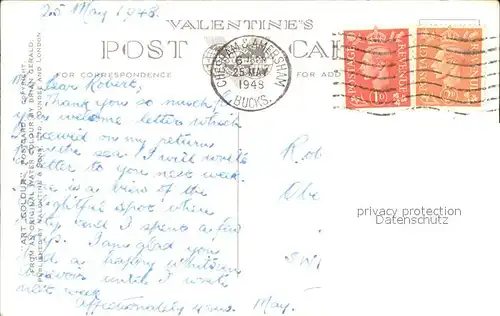 25 May 1948.
VALENTINE'S
POST CARD
FOR CORRESPONDENCE
FOR ADD
CHESHAM & AMERSHAM
25 MAY
1948
BUCKS.
POSTAGE REVENUE
1D
Dear Robert,
Thank you so much for
your welcome letter which
received on my return
from the sea. I will write
letter to you next week.
is a view of the
delightful spot where
and I spent a few
days. I am glad you
had a happy Whitsun
until I write
next week
affectionately yours May.
Rob
privacy protection
Datenschutz
"ART COLOUR" POSTCARD COPYRIGHT
FROM AN ORIGINAL WATER COLOUR BY BRIAN GERALD.
PUBLISHED BY VALENTINE & SONS, LTD. DUNDEE AND LONDON